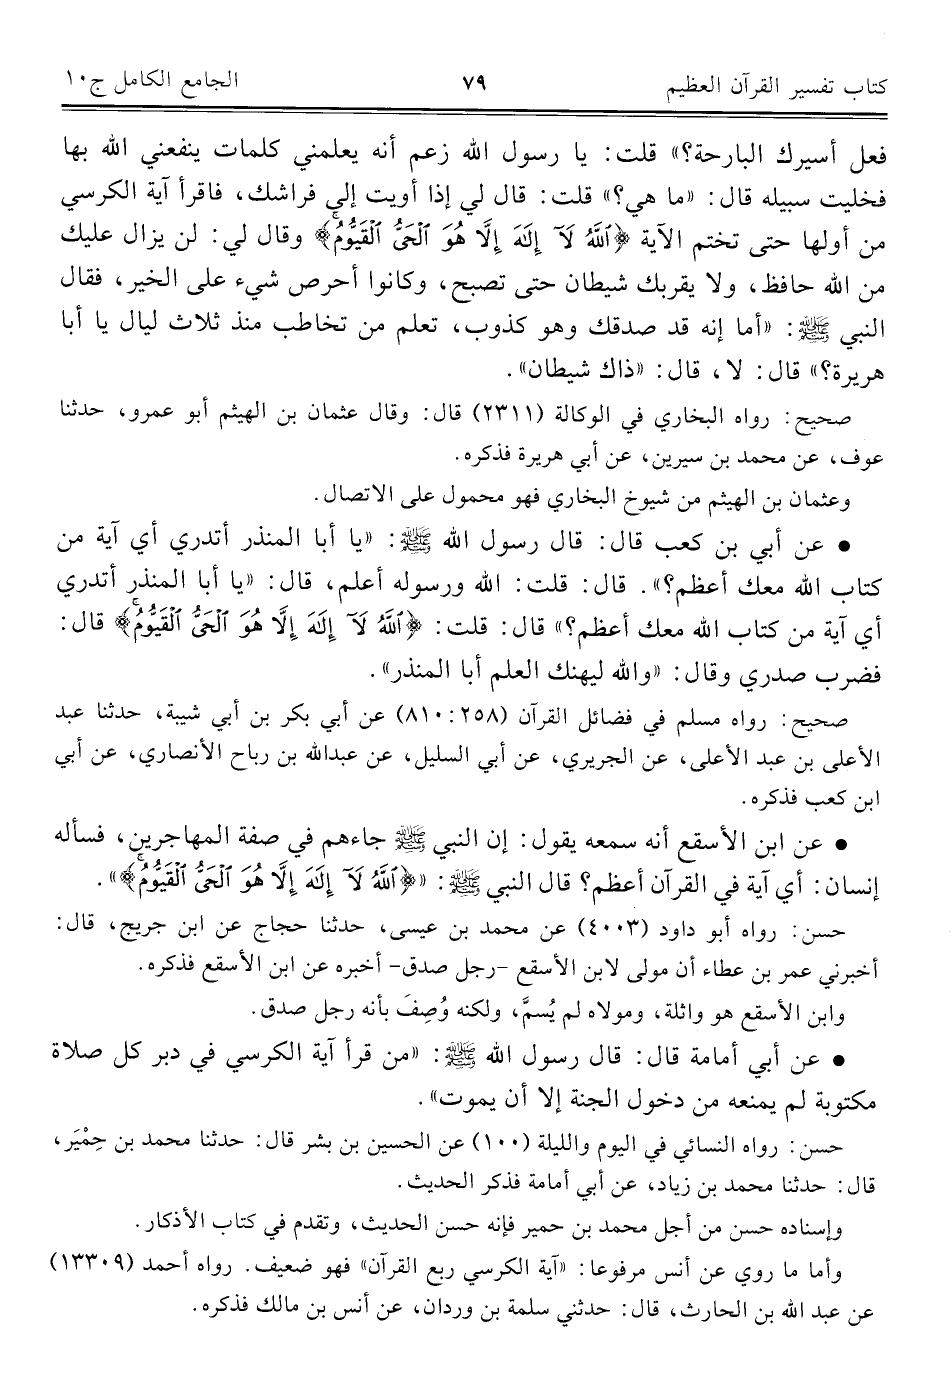 كتاب تفسير القرآن العظيم ٧٩ الجامع الكامل ج١٠
فعل أسيرك البارحة؟» قلت: يا رسول الله زعم أنه يعلمني كلمات ينفعني الله بها
فخليت سبيله قال: «ما هي؟» قلت: قال لي إذا أويت إلى فراشك، فاقرأ آية الكرسي
من أولها حتى تختم الآية ﴿ٱللَّهُ لَآ إِلَٰهَ إِلَّا هُوَ ٱلْحَىُّ ٱلْقَيُّومُۚ﴾ وقال لي: لن يزال عليك
من الله حافظ، ولا يقربك شيطان حتى تصبح، وكانوا أحرص شيء على الخير، فقال
النبي ﷺ: «أما إنه قد صدقك وهو كذوب، تعلم من تخاطب منذ ثلاث ليال يا أبا
هريرة؟» قال: لا، قال: «ذاك شيطان».
صحيح: رواه البخاري في الوكالة (٢٣١١) قال: وقال عثمان بن الهيثم أبو عمرو، حدثنا
عوف، عن محمد بن سيرين، عن أبي هريرة فذكره.
وعثمان بن الهيثم من شيوخ البخاري فهو محمول على الاتصال.
• عن أبي بن كعب قال: قال رسول الله ﷺ: «يا أبا المنذر أتدري أي آية من
كتاب الله معك أعظم؟». قال: قلت: الله ورسوله أعلم، قال: «يا أبا المنذر أتدري
أي آية من كتاب الله معك أعظم؟» قال: قلت: ﴿ٱللَّهُ لَآ إِلَٰهَ إِلَّا هُوَ ٱلْحَىُّ ٱلْقَيُّومُۚ﴾ قال:
فضرب صدري وقال: «والله ليهنك العلم أبا المنذر».
صحيح: رواه مسلم في فضائل القرآن (٨١٠:٢٥٨) عن أبي بكر بن أبي شيبة، حدثنا عبد
الأعلى بن عبد الأعلى، عن الجريري، عن أبي السليل، عن عبدالله بن رباح الأنصاري، عن أبي
ابن كعب فذكره.
• عن ابن الأسقع أنه سمعه يقول: إن النبي ﷺ جاءهم في صفة المهاجرين، فسأله
إنسان: أي آية في القرآن أعظم؟ قال النبي ﷺ: «﴿ٱللَّهُ لَآ إِلَٰهَ إِلَّا هُوَ ٱلْحَىُّ ٱلْقَيُّومُۚ﴾».
حسن: رواه أبو داود (٤٠٠٣) عن محمد بن عيسى، حدثنا حجاج عن ابن جريج، قال:
أخبرني عمر بن عطاء أن مولى لابن الأسقع -رجل صدق- أخبره عن ابن الأسقع فذكره.
وابن الأسقع هو واثلة، ومولاه لم يُسمَّ، ولكنه وُصِفَ بأنه رجل صدق.
• عن أبي أمامة قال: قال رسول الله ﷺ: «من قرأ آية الكرسي في دبر كل صلاة
مكتوبة لم يمنعه من دخول الجنة إلا أن يموت».
حسن: رواه النسائي في اليوم والليلة (١٠٠) عن الحسين بن بشر قال: حدثنا محمد بن حِمْيَر،
قال: حدثنا محمد بن زياد، عن أبي أمامة فذكر الحديث.
وإسناده حسن من أجل محمد بن حمير فإنه حسن الحديث، وتقدم في كتاب الأذكار.
وأما ما روي عن أنس مرفوعا: «آية الكرسي ربع القرآن» فهو ضعيف. رواه أحمد (١٣٣٠٩)
عن عبد الله بن الحارث، قال: حدثني سلمة بن وردان، عن أنس بن مالك فذكره.